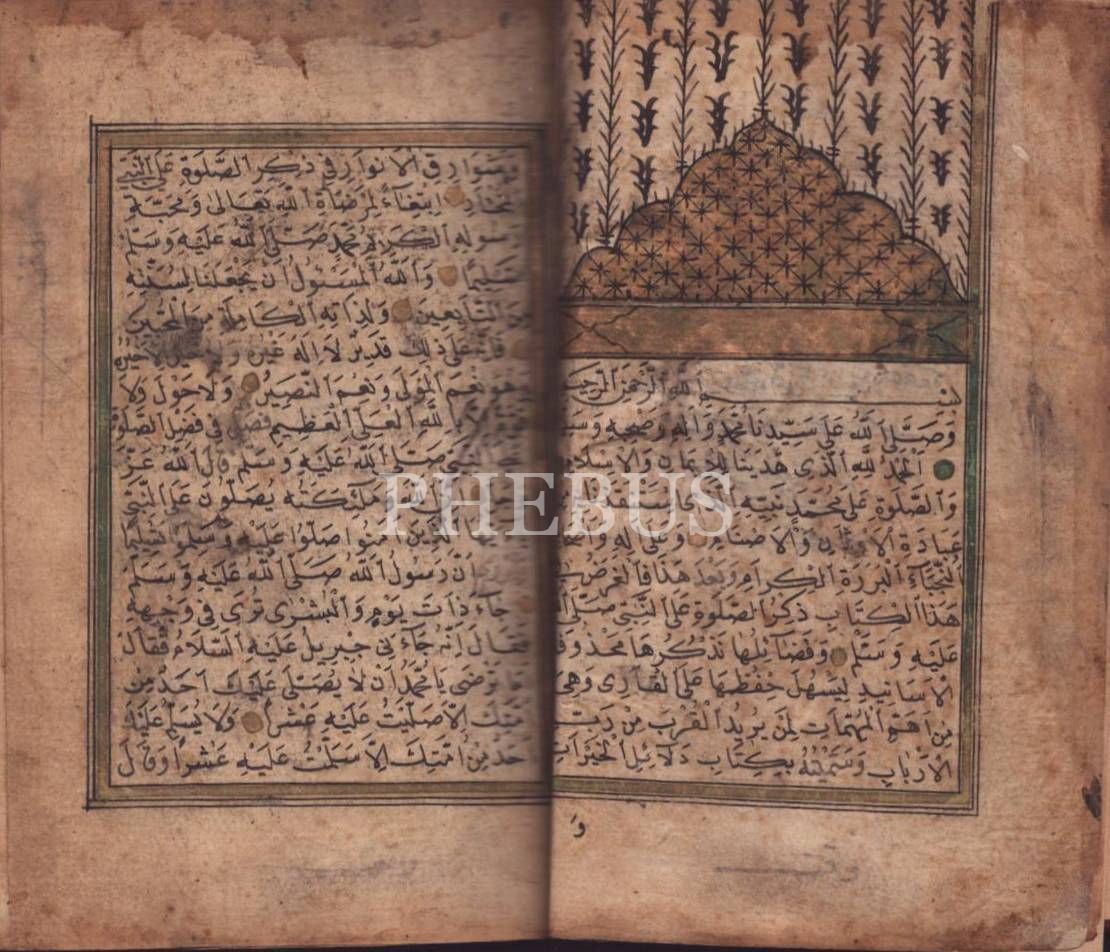 بسم الله الرحمن الرحيم
وَصَلَّى اللّٰهُ عَلَى سَيِّدِنَا مُحَمَّدٍ وَآلِهِ وَصَحْبِهِ وَسَ
اَلْحَمْدُ لِلّٰهِ الَّذِى هَدٰينَا لِلْاِيمَانِ وَالْاِسْلَامِ
وَالصَّلٰوةِ عَلَى مُحَمَّدٍ نَبِيِّهِ الَّذِى اسْتَنْقَذَنَا
عِبَادَةِ الْاَوْثَانِ وَالْاَصْنَامِ وَعَلَى اٰلِهِ وَ
النُّجَبَاءِ الْبَرَرَةِ الْكِرَامِ وَبَعْدَ هَذَا فَالْغَرَضُ
هَذَا الْكِتَابِ ذِكْرُ الصَّلٰوةِ عَلَى النَّبِىِّ صَلَّى
عَلَيْهِ وَسَلَّمَ وَفَضَائِلِهَا نَذْكُرُهَا مَحْذُوفَ
الْاَسَانِيدِ لِيَسْهُلَ حِفْظُهَا عَلَى الْقَارِى وَهِىَ
مِنْ اَهَمِّ الْمُهِمَّاتِ لِمَنْ يُرِيدُ الْقُرْبَ مِنْ رَبِّ
الْاَرْبَابِ وَسَمَّيْتُهُ بِكِتَابِ دَلَائِلِ الْخَيْرَاتِ
وَ
وَشَوَارِقِ الْاَنْوَارِ فِى ذِكْرِ الصَّلٰوةِ عَلَى النَّبِىِّ
الْمُخْتَارِ اِبْتِغَاءً لِمَرْضَاةِ اللّٰهِ تَعَالَى وَمَحَبَّةٍ
رَسُولِهِ الْكَرِيمِ مُحَمَّدٍ صَلَّى اللّٰهُ عَلَيْهِ وَسَلَّمَ
تَسْلِيمًا وَاللّٰهُ الْمَسْؤُلُ اَنْ يَجْعَلَنَا لِسُنَّتِهِ
مِنَ التَّابِعِينَ وَلِذَاتِهِ الْكَامِلَةِ مِنَ الْمُحِبِّينَ
فَاِنَّهُ عَلَى ذٰلِكَ قَدِيرٌ لَا اِلٰهَ غَيْرُهُ وَلَا خَيْرَ اِلَّا خَيْرُهُ
وَهُوَ نِعْمَ الْمَوْلَى وَنِعْمَ النَّصِيرُ وَلَا حَوْلَ وَلَا
قُوَّةَ اِلَّا بِاللّٰهِ الْعَلِىِّ الْعَظِيمِ فَصْلٌ فِى فَضْلِ الصَّلٰوةِ
عَلَى النَّبِىِّ صَلَّى اللّٰهُ عَلَيْهِ وَسَلَّمَ قَالَ اللّٰهُ عَزَّ
مَلٰئِكَتَهُ يُصَلُّونَ عَلَى النَّبِىِّ
الَّذِينَ اٰمَنُوا صَلُّوا عَلَيْهِ وَسَلِّمُوا تَسْلِيمًا
اَنَّ رَسُولَ اللّٰهِ صَلَّى اللّٰهُ عَلَيْهِ وَسَلَّمَ
جَاءَ ذَاتَ يَوْمٍ وَالْبُشْرٰى تُرَى فِى وَجْهِهِ
فَقَالَ اِنَّهُ جَاءَنِى جِبْرِيلُ عَلَيْهِ السَّلَامُ فَقَالَ
تَرْضَى يَا مُحَمَّدُ اَنْ لَا يُصَلِّىَ عَلَيْكَ اَحَدٌ مِنْ
اُمَّتِكَ اِلَّا صَلَّيْتُ عَلَيْهِ عَشْرًا وَلَا يُسَلِّمَ عَلَيْكَ
اَحَدٌ مِنْ اُمَّتِكَ اِلَّا سَلَّمْتُ عَلَيْهِ عَشْرًا وَقَالَ
PHEBUS